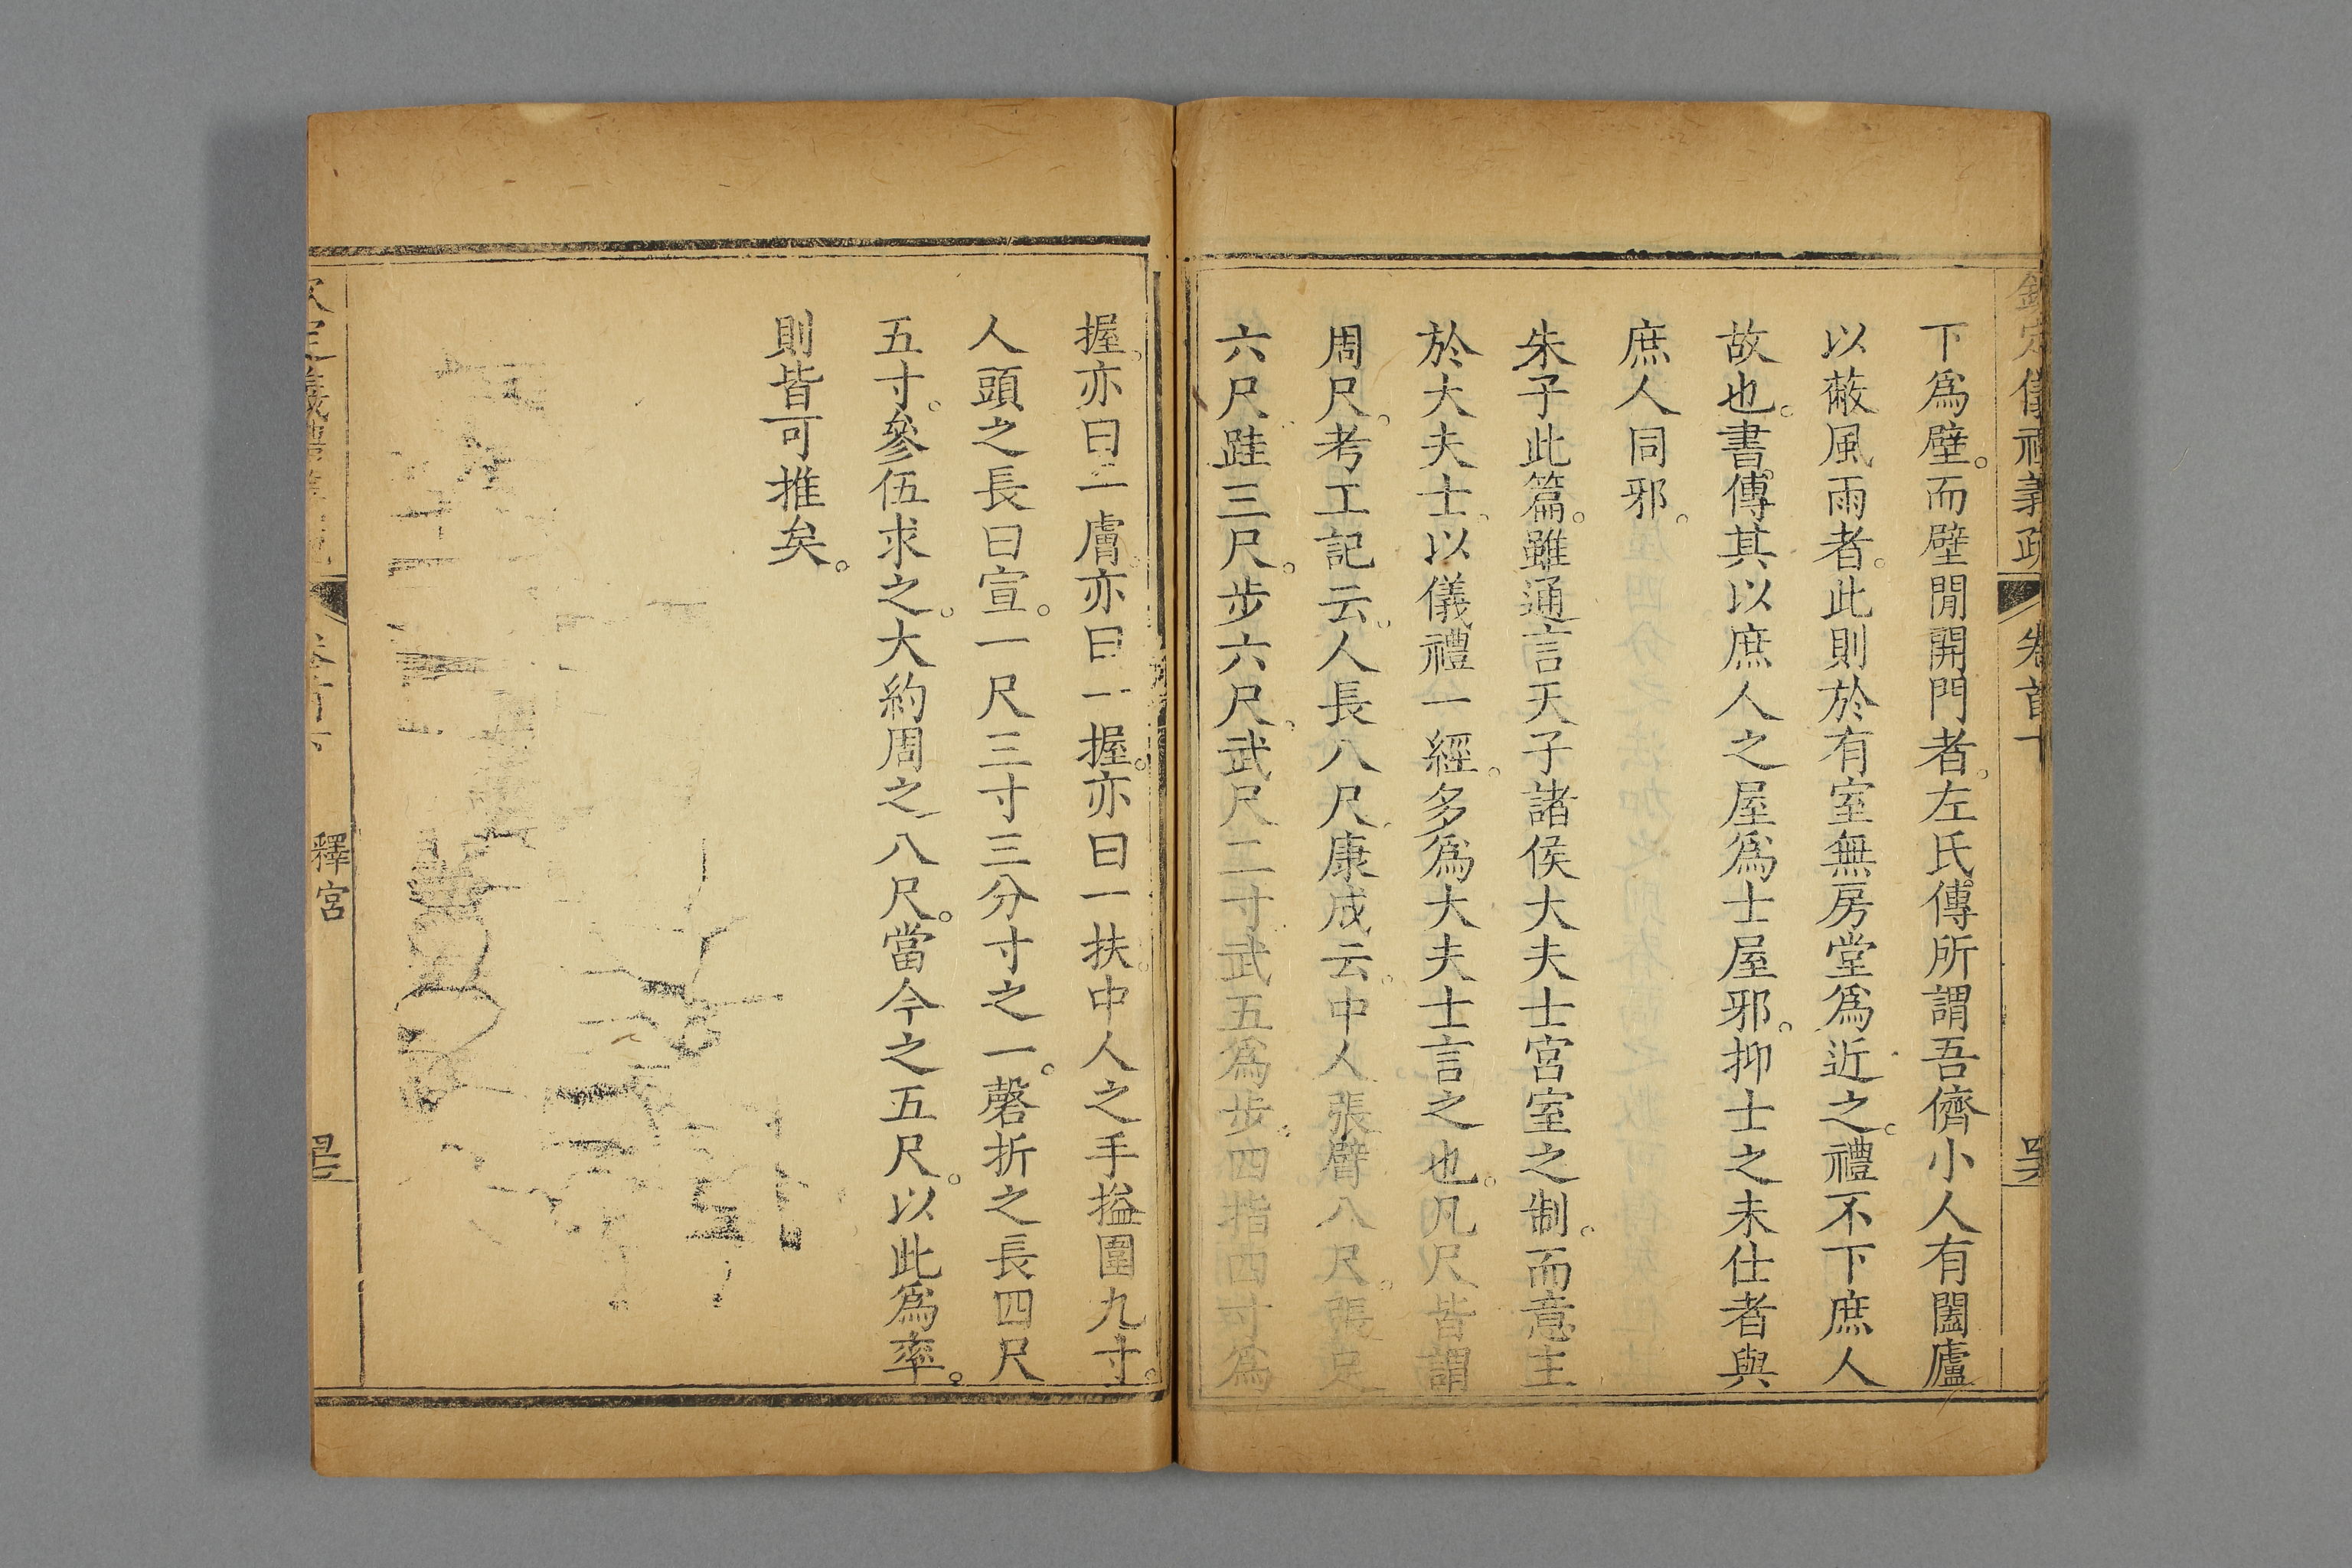 欽定儀禮義疏 卷首下
下爲壁。而壁閒開門者。左氏傳所謂吾儕小人有闔廬
以蔽風雨者。此則於有室無房堂爲近之。禮不下庶人
故也。書傳其以庶人之屋爲士屋邪。抑士之未仕者與
庶人同邪。
朱子此篇。雖通言天子諸侯大夫士宮室之制。而意主
於大夫士。以儀禮一經。多爲大夫士言之也。凡尺皆謂
周尺。考工記云。人長八尺。康成云。中人張臂八尺。張足
六尺。跬三尺。步六尺。武尺二寸。武五爲步。四指四寸爲
握。亦曰一膚。亦曰一握。亦曰一扶。中人之手搤圍九寸。
人頭之長曰宣。一尺三寸三分寸之一。磬折之長四尺
五寸。參伍求之。大約周之八尺。當今之五尺。以此爲率。
則皆可推矣。
釋宮